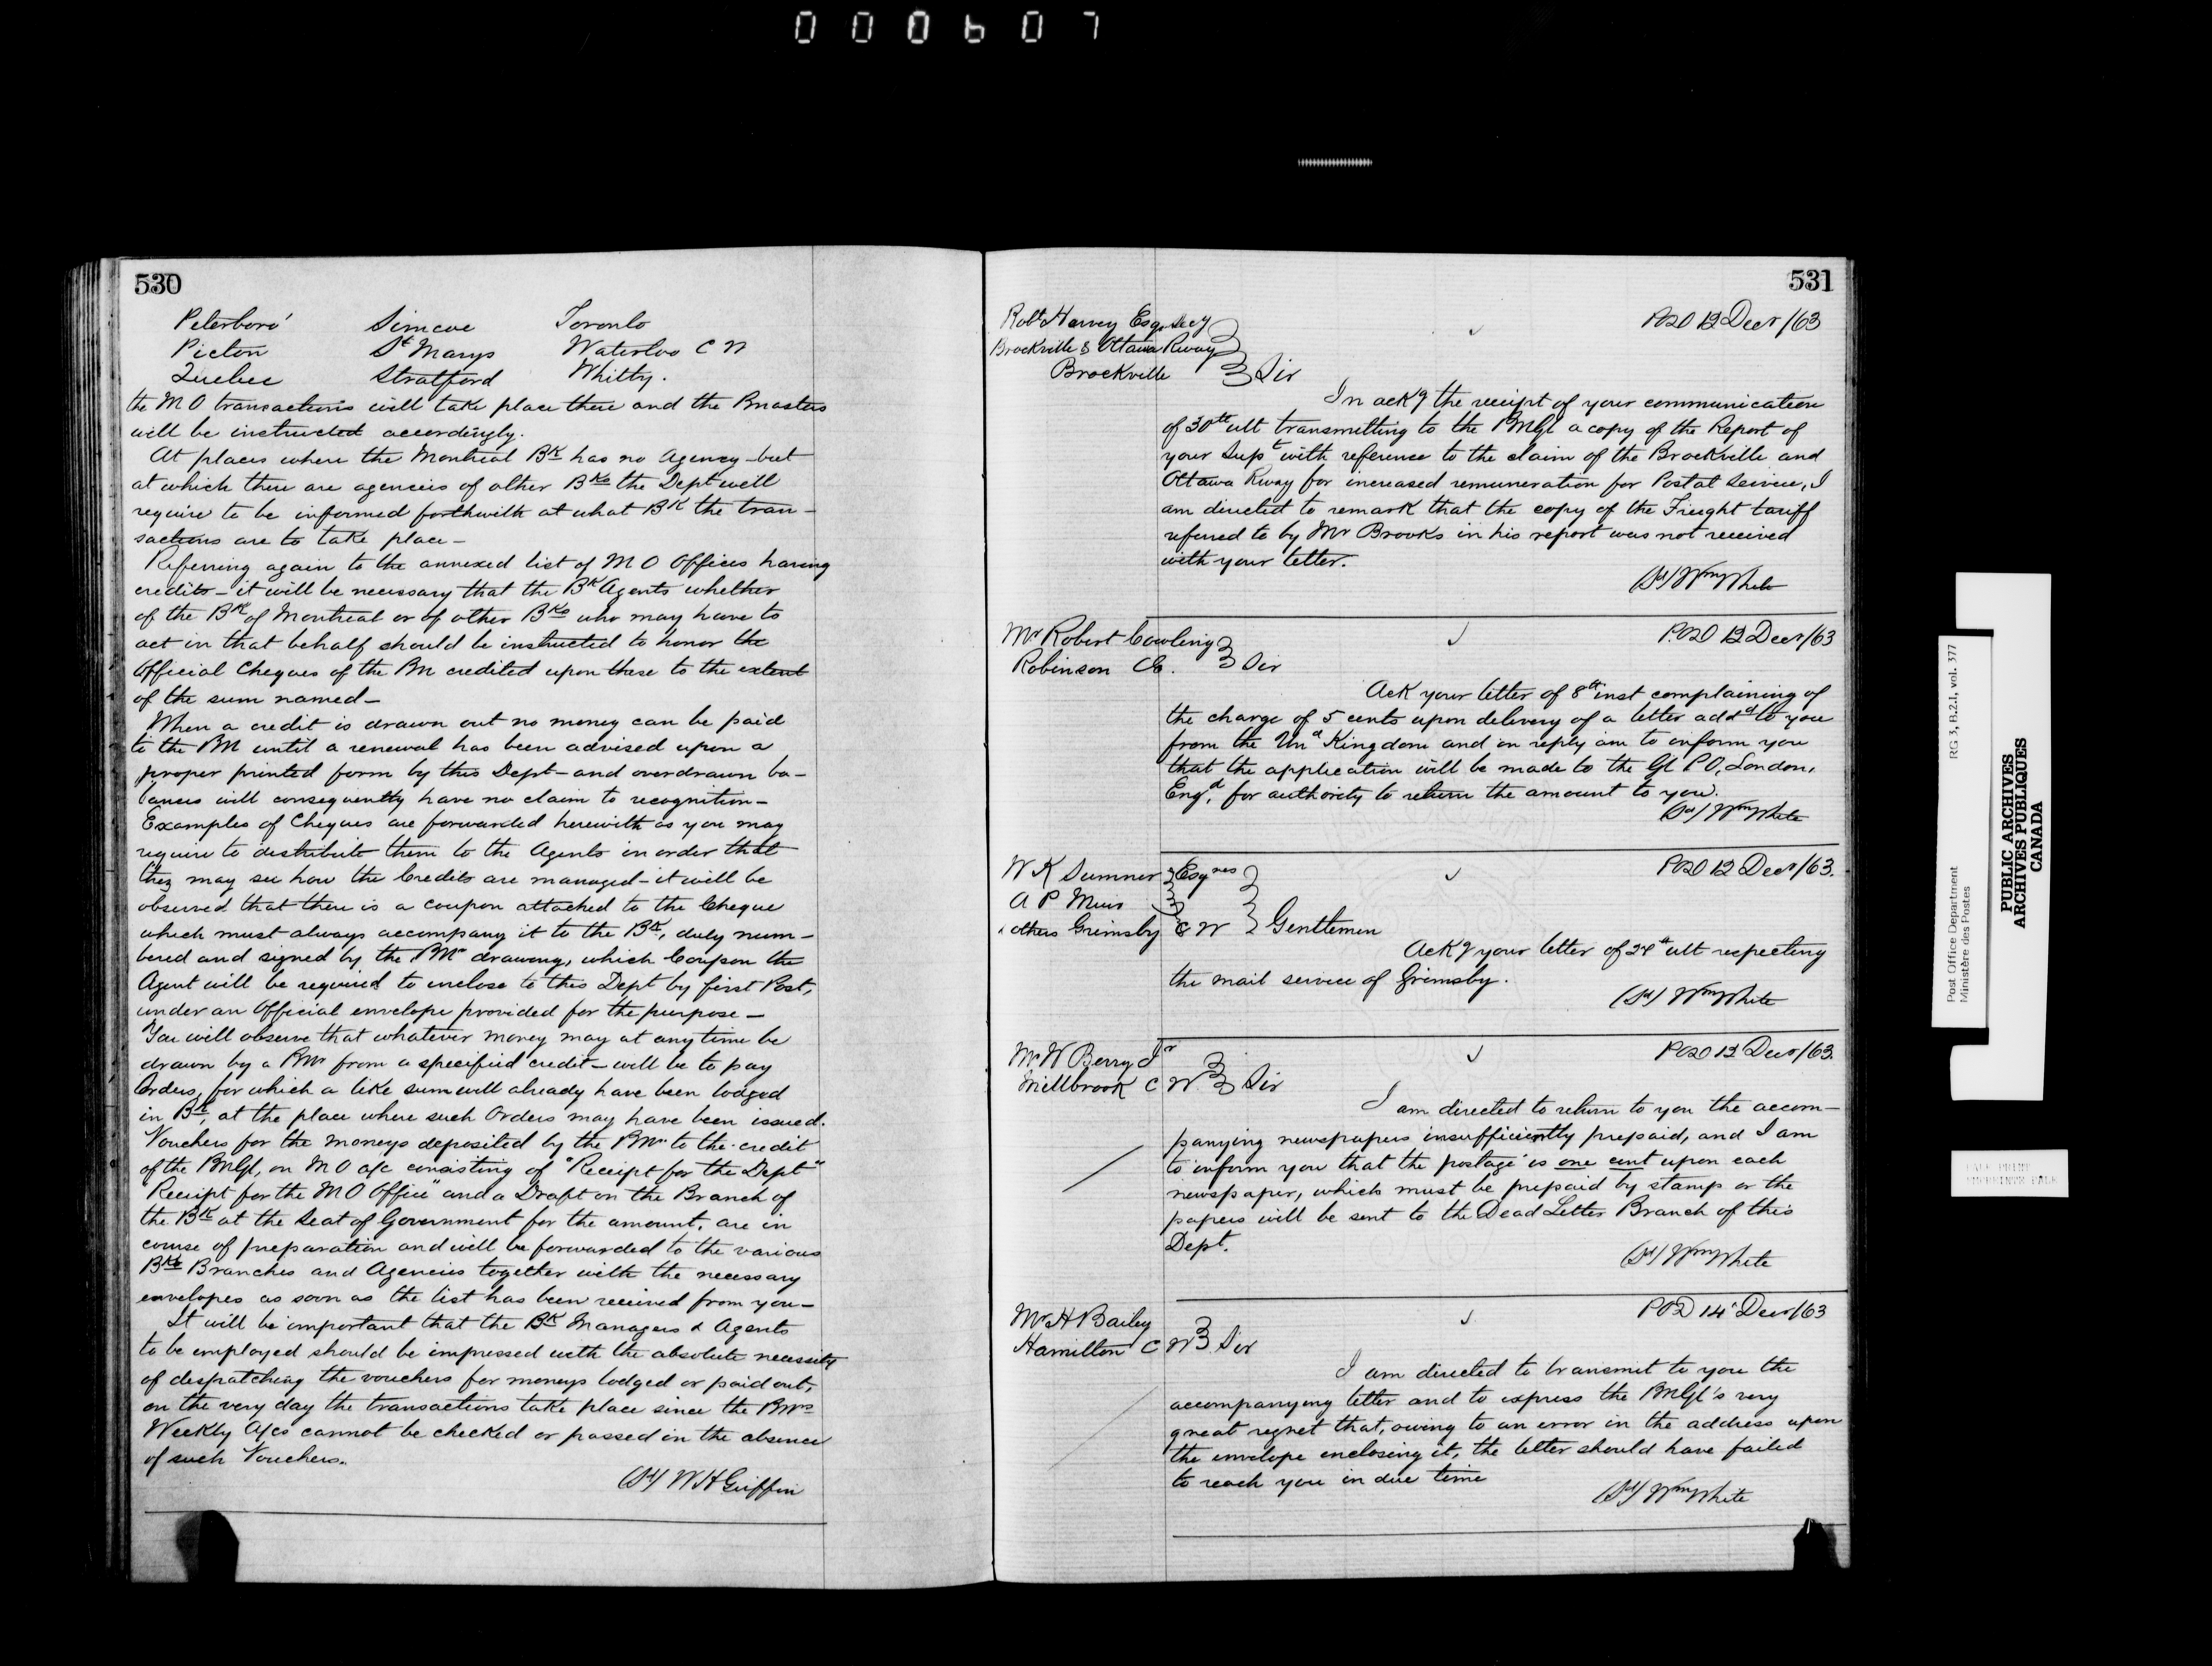 000607
530
Peterboro' Simcoe Toronto
Picton St Marys Waterloo C W
Quebec Stratford Whitby.
the M O transactions will take place there and the Pmasters
will be instructed accordingly.
At places where the Montreal Bk has no Agency - but
at which there are agencies of other Bks the Dept will
require to be informed forthwith at what Bk the tran-
sactions are to take place -
Referring again to the annexed list of M O Offices having
credits - it will be necessary that the Bk Agents whether
of the Bk of Montreal or of other Bks who may have to
act in that behalf should be instructed to honor the
Official Cheques of the Pm credited upon these to the extent
of the sum named -
When a credit is drawn out no money can be paid
to the PM until a renewal has been advised upon a
proper printed form by this Dept - and overdrawn ba-
lances will consequently have no claim to recognition -
Examples of Cheques are forwarded herewith as you may
require to distribute them to the Agents in order that
they may see how the Credits are managed - it will be
observed that there is a coupon attached to the Cheque
which must always accompany it to the Bk, duly num-
bered and signed by the PMr drawing, which Coupon the
Agent will be required to enclose to this Dept by first Post,
under an Official envelope provided for the purpose -
You will observe that whatever money may at any time be
drawn by a PMr from a specified credit - will be to pay
Orders, for which a like sum will already have been lodged
in Bk, at the place where such Orders may have been issued.
Vouchers for the moneys deposited by the PMr to the credit
of the PMGl, on M O a/c consisting of "Receipt for the Dept"
"Receipt for the M O Office" and a Draft on the Branch of
the Bk at the Seat of Government for the amount, are in
course of preparation and will be forwarded to the various
Bks Branches and Agencies together with the necessary
envelopes as soon as the list has been received from you -
It will be important that the Bk Managers & Agents
to be employed should be impressed with the absolute necessity
of despatching the vouchers for moneys lodged or paid out,
on the very day the transactions take place since the PMrs
Weekly A/cs cannot be checked or passed in the absence
of such Vouchers.
(Sd) W H Griffin
531
Robt Harvey Esq. Secy
Brockville & Ottawa Rway
Brockville Sir
POD 12 Decr/63
In ackg the receipt of your communication
of 30th ult transmitting to the PMGl a copy of the Report of
your Supt with reference to the claim of the Brockville and
Ottawa Rway for increased remuneration for Postal Service, I
am directed to remark that the copy of the Freight tariff
referred to by Mr Brooks in his report was not received
with your letter.
(Sd) Wm White
Mr Robert Cowling
Robinson CE. Sir
P.OD 12 Decr/63
Ack your letter of 8th inst complaining of
the charge of 5 cents upon delivery of a letter addd to you
from the Und Kingdom and in reply am to inform you
that the application will be made to the Gl P O, London,
Engd, for authority to return the amount to you.
(Sd) Wm White
W K Sumner Esqres
A P Muir
& others Grimsby C W Gentlemen
POD 12 Decr/63.
Ackg your letter of 24th ult respecting
the mail service of Grimsby.
(Sd) Wm White
Mr W Berry Jr
Millbrook C W Sir
POD 12 Decr/63.
I am directed to return to you the accom-
panying newspapers insufficiently prepaid, and I am
to inform you that the postage is one cent upon each
newspaper, which must be prepaid by stamp or the
papers will be sent to the Dead Letter Branch of this
Dept.
(Sd) Wm White
Mr H Bailey
Hamilton C W Sir
POD 14 Decr/63
I am directed to transmit to you the
accompanying letter and to express the PMGl's very
great regret that, owing to an error in the address upon
the envelope enclosing it, the letter should have failed
to reach you in due time
(Sd) Wm White
Post Office Department RG 3, B.2.1, vol. 377
Ministère des Postes
PUBLIC ARCHIVES
ARCHIVES PUBLIQUES
CANADA